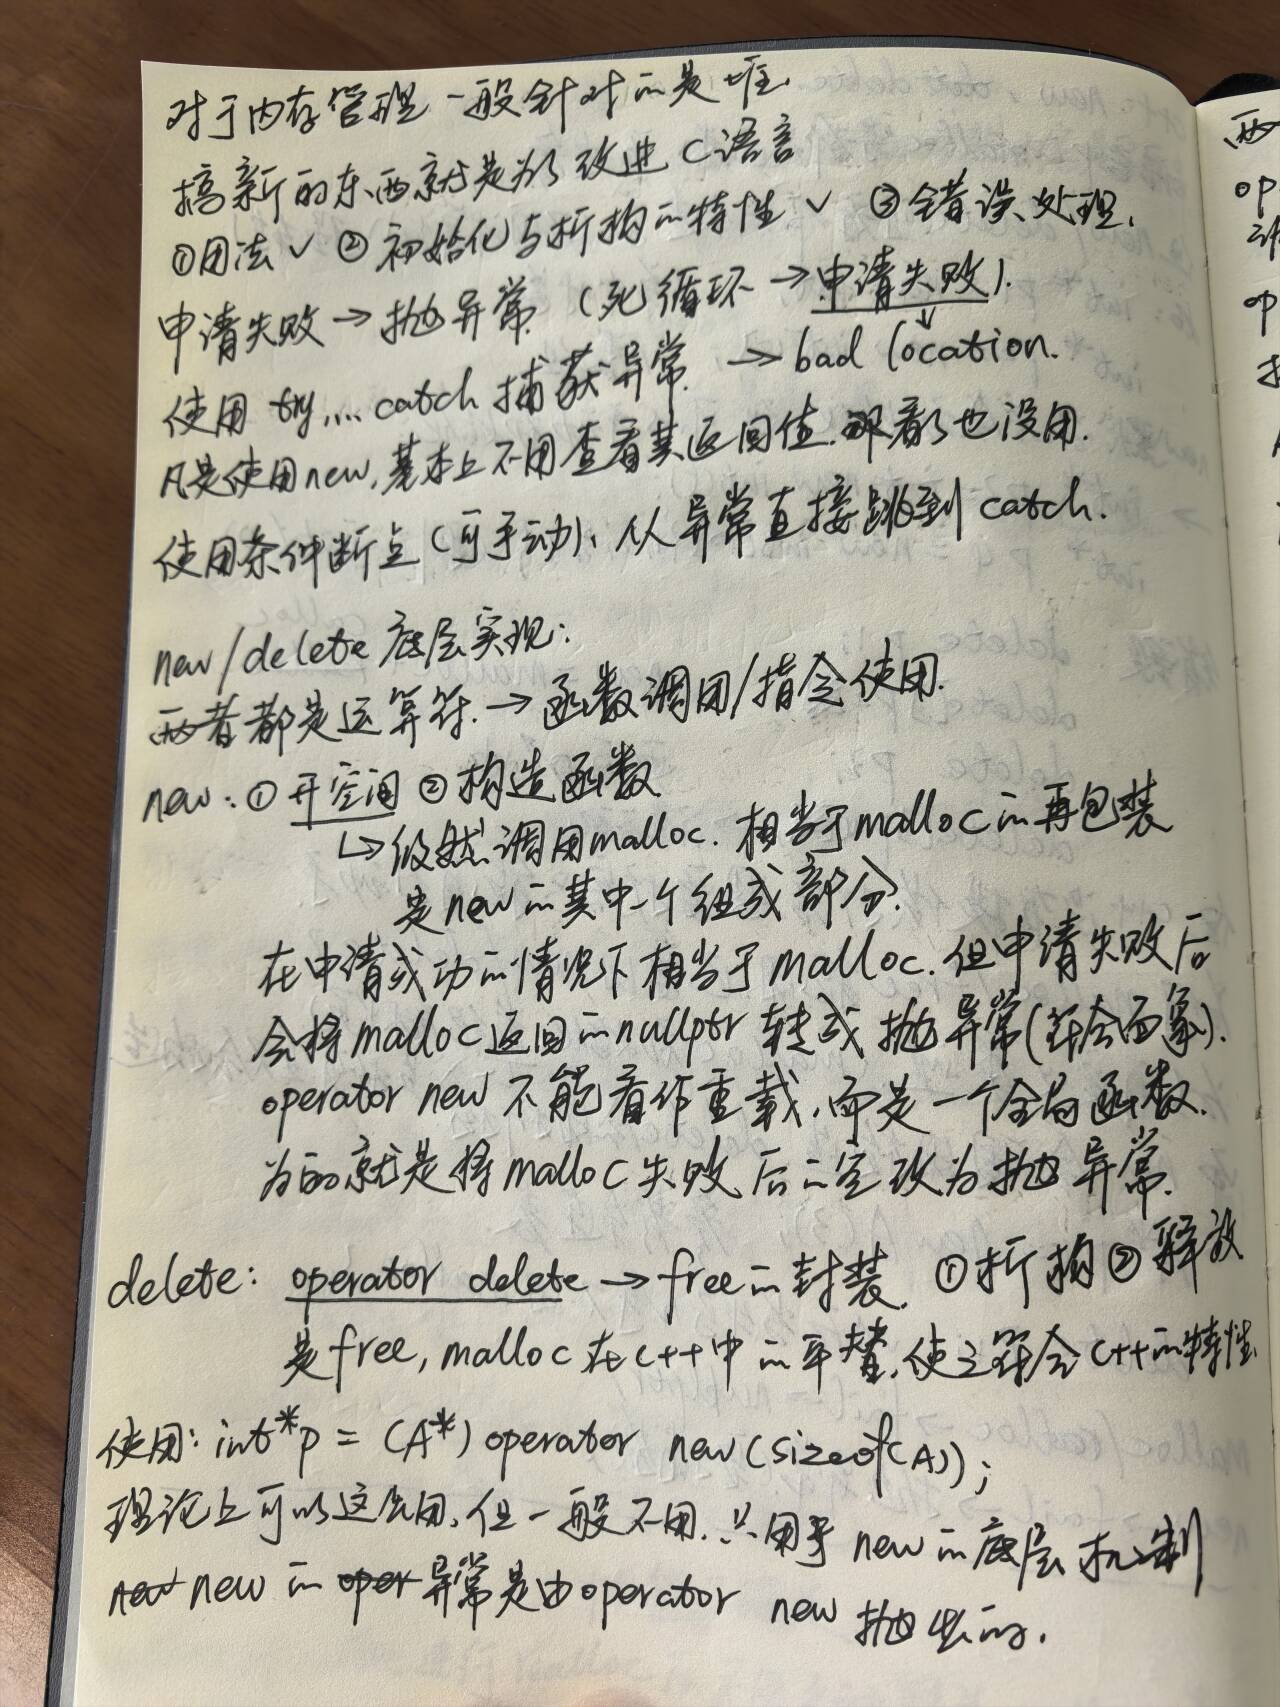 对于内存管理一般针对的是堆.
搞新的东西就是为了改进C语言
①用法✓ ②初始化与析构的特性✓ ③错误处理.
申请失败→抛异常.(死循环→申请失败).
使用try....catch捕获异常. →bad location.
凡是使用new,基本上不用查看其返回值.那看了也没用.
使用条件断点(可手动),从异常直接跳到catch.
new/delete底层实现:
两者都是运算符.→函数调用/指令使用.
new:①开空间②构造函数
↳仍然调用malloc.相当于malloc的再包装
是new的其中一个组成部分.
在申请成功的情况下相当于malloc.但申请失败后
会将malloc返回的nullptr转成抛异常(符合面象).
operator new不能看作重载,而是一个全局函数.
为的就是将malloc失败后的空改为抛异常.
delete: operator delete→free的封装. ①析构②释放
是free,malloc在c++中的平替,使之符合C++的特性.
使用: int*p = (A*) operator new(sizeof(A));
理论上可以这么用,但一般不用.只用于new的底层机制
new new的oper异常是由operator new抛出的.
两
op
op